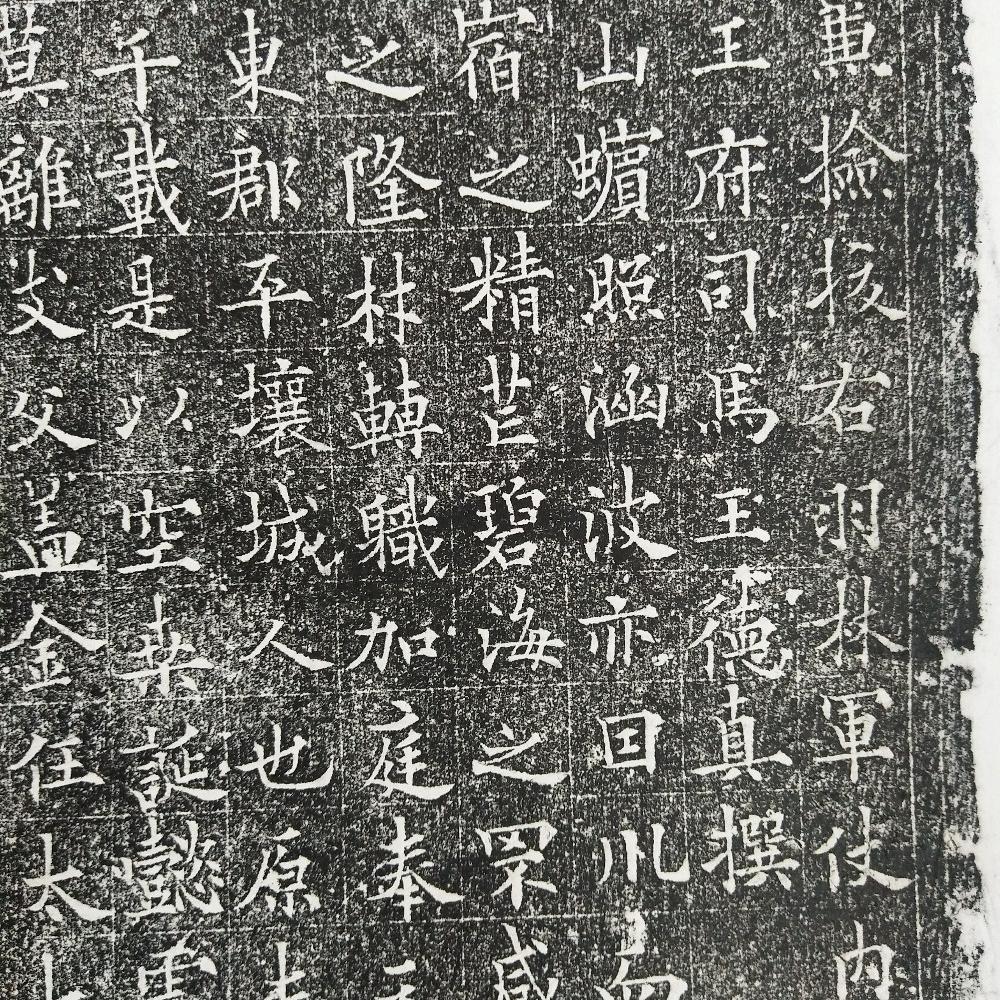 兼撿挍右羽林軍仗内
王府司馬王德真撰
山蠙照涵波亦曰川而
宿之精芒碧海之罘感
之隆材轉職加庭奉
東郡平壤城人也原
千載是以空桒誕懿虛
莫離支父盖金任太